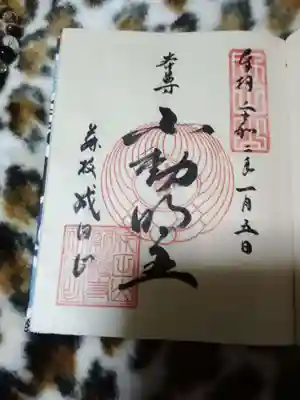 奉拝 令和二年一月五日
本尊
不動明王
藤枝成田山